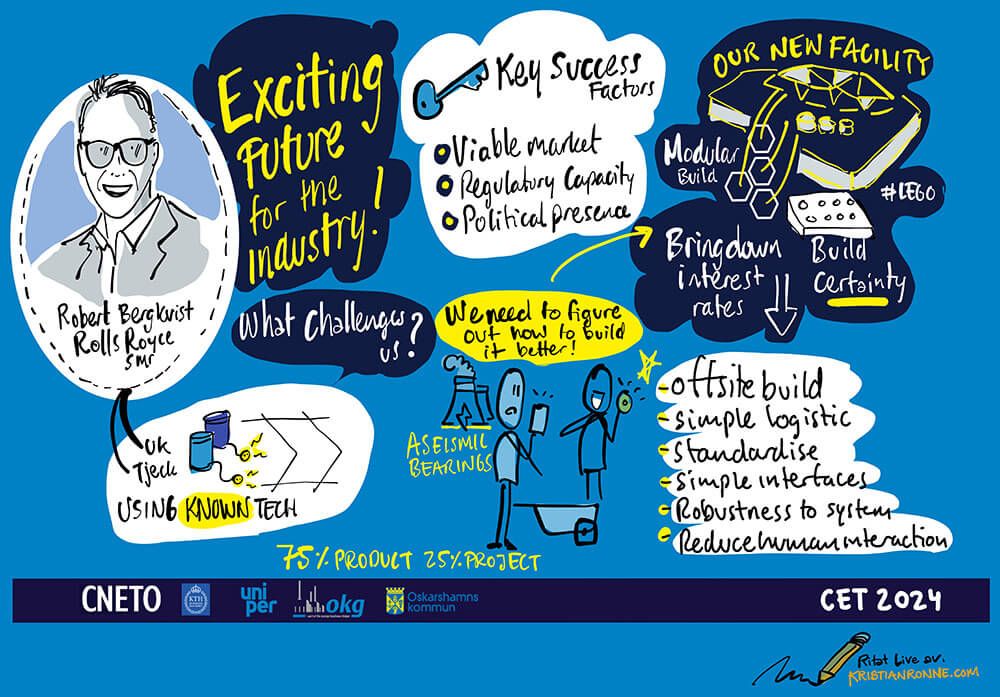 Exciting
Future
for the
Industry!
Robert Bergkvist
Rolls Royce
SMR
Key Success
Factors
Viable market
Regulatory Capacity
Political presence
OUR NEW FACILITY
Modular
Build
#LEGO
Bring down
interest
rates
Build
Certainty
What Challenges
us?
We need to figure
out how to build
it better!
ASEISMIC
BEARINGS
UK
Tjeck
USING KNOWN TECH
- offsite build
- simple logistic
- standardise
- simple interfaces
- Robustness to system
- Reduce human interaction
75% PRODUCT 25% PROJECT
CNETO
KTH
uni
per
okg
Oskarshamns
kommun
CET 2024
Ritat Live av.
KRISTIANRONNE.COM